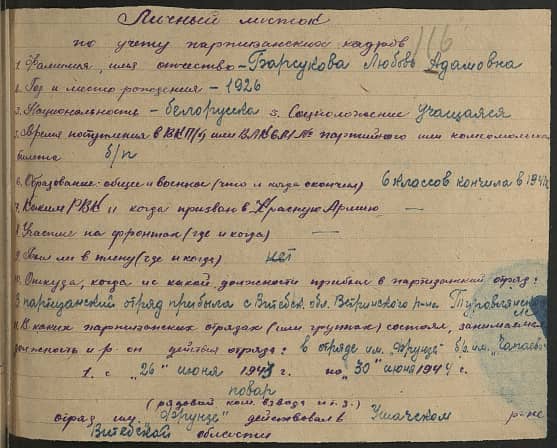 Личный листок
по учету партизанских кадров 116
1. Фамилия, имя отчество – Барсукова Любовь Адамовна
2. Год и место рождения – 1926
3. Национальность – белоруска 5. Соцположение Учащаяся
5. Время поступления в ВКП(б) или ВЛКСМ № партийного или комсомольск
билета б/п
6. Образование общее и военное (что и когда окончил) 6 классов кончила в 194
7. Каким РВК и когда призван в Красную Армию —
8. Участие на фронтах (где и когда) —
9. Был ли в плену (где и когда) нет
10. Откуда, когда из какой должности прибыл в партизанский отряд:
В партизанский отряд прибыла с Витебск. обл. Ветринского р-на
11. В каких партизанских отрядах (или группах) состоял, занимаемая
должность и р-он действия отряда: в отряде им. "Фрунзе" бр. им. "Чапаева"
1. с "26" июня 1943 г. по "30" июня 1944 г.
повар
(рядовой ком. взвода и т.д.)
отряд им. "Фрунзе" действовал в Ушачском р-не
Витебской области